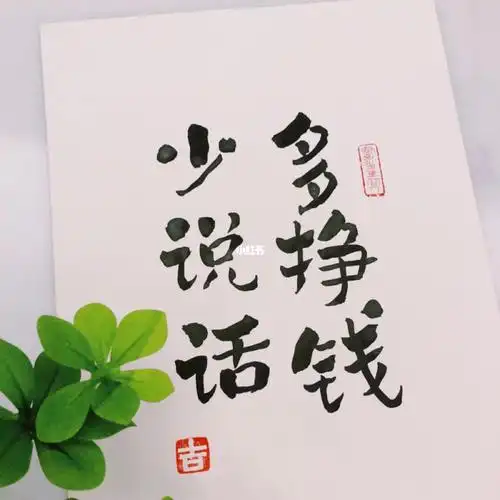 多挣钱
少说话
吉
小红书